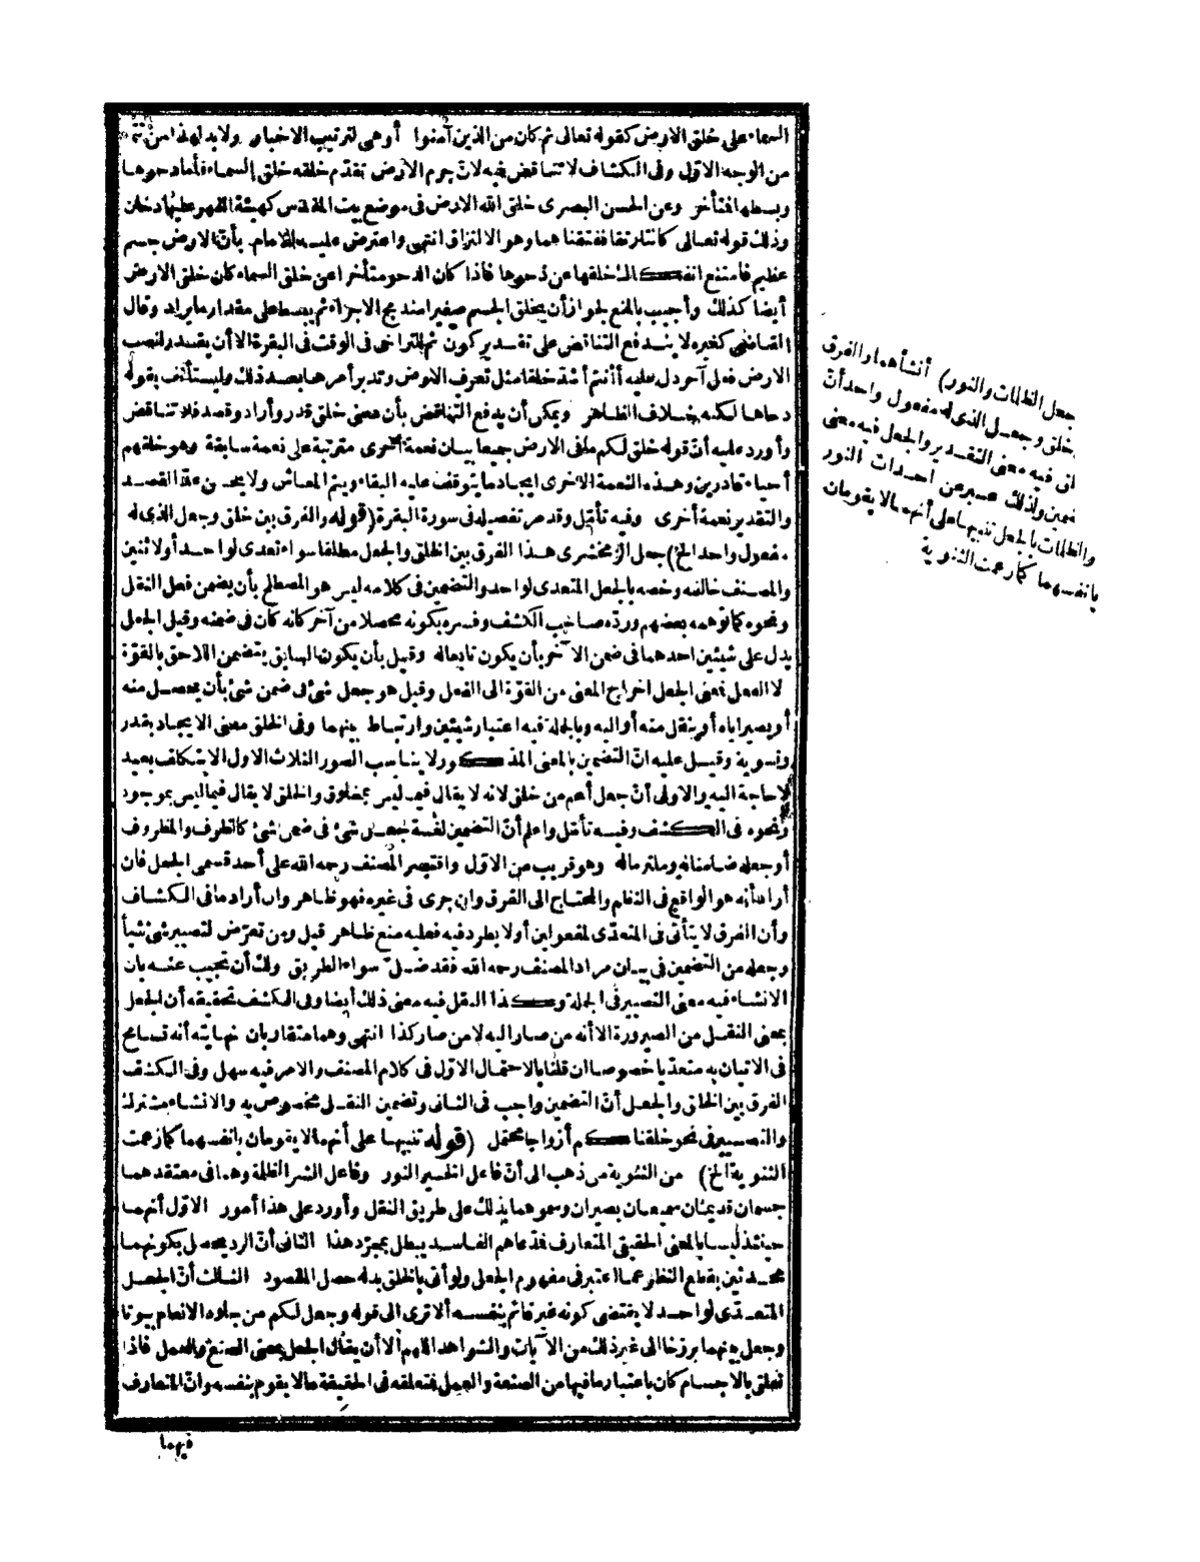 السماء على خلق الارض كقوله تعالى ثم كان من الذين آمنوا أو هى لترتيب الاخبار ولا بد لهذا من تتمة
من الوجه الاوّل وفى الكشاف لا تناقض فيه لانّ جرم الارض تقدّم خلقه خلق السماء فأما دحوها
وبسطها فتأخر وعن الحسن البصرى خلق الله الارض فى موضع بيت المقدّس كهيئة الفهر عليها دخان
وذلك قوله تعالى كانتا رتقا ففتقناهما وهو الالتزاق انتهى واعترض عليه الامام بأنّ الارض جسم
عظيم فامتنع انفكاك خلقها عن دحوها فاذا كان الدحو متأخرا عن خلق السماء كان خلق الارض
أيضا كذلك وأجيب بالمنع لجواز أن يخلق الجسم صغيرا مندمج الاجزاء ثم يبسط على مقدار ما يراد وقال
القاضى كغيره لا يندفع التناقض على تقدير كون ثم للتراخى فى الوقت فى البقرة الا أن يقدر لنصب
الارض فعل آخر دل عليه أأنتم أشدّ خلقا مثل تعرف الارض وتدبر أمرها بعد ذلك وليستأنف بقوله
دحاها لكنه خلاف الظاهر ويمكن أن يدفع التناقض بأن معنى خلق قدر وأراد وقصد فلا تناقض
وأورد عليه أنّ قوله خلق لكم ما فى الارض جميعا بيان نعمة أخرى مترتبة على نعمة سابقة وهو خلقهم
أحياء قادرين وهذه النعمة الاخرى ايجاد ما يتوقف عليه البقاء ويتم المعاش ولا يحسن عدّ القصد
والتقدير نعمة أخرى وفيه تأمّل وقد مر تفصيله فى سورة البقرة (قوله والفرق بين خلق وجعل الذى له
مفعول واحد الخ) جعل الزمخشرى هذا الفرق بين الخلق والجعل مطلقا سواء تعدى لواحد أو لاثنين
والمصنف خالفه وخصه بالجعل المتعدى لواحد والتضمين فى كلامه ليس هو المصطلح بأن يضمن فعل النقل
ونحوه كما توهمه بعضهم وردّه صاحب الكشف وفسره بكونه محصلا من آخر كانه كان فى ضمنه وقيل الجعل
يدل على شيئين احدهما فى ضمن الآخر بأن يكون تابعا له وقيل بأن يكون السابق يتضمن اللاحق بالقوّة
لا الفعل فمعنى الجعل اخراج المعنى من القوّة الى الفعل وقيل هو جعل شئ فى ضمن شئ بأن يحصل منه
أو يصير اياه أو ينقل منه أو اليه وبالجملة فيه اعتبار شيئين وارتباط بينهما وفى الخلق معنى الايجاد بقدر
وتسوية وقيل عليه انّ التضمين بالمعنى المذكور لا يناسب الصور الثلاث الاول الا بتكلف بعيد
لا حاجة اليه والاولى أنّ جعل أعم من خلق لانه لا يقال فيما ليس بمخلوق والخلق لا يقال فيما ليس بموجود
ونحوه فى الكشف وفيه تأمّل واعلم أنّ التضمين لغة جعل شئ فى ضمن شئ كالظرف والمظروف
أو جعله ضامنا له وملتزما له وهو قريب من الاوّل واقتصر المصنف رحمه الله على أحد قسمى الجعل فان
أراد أنه هو الواقع فى النظم والمحتاج الى الفرق وان جرى فى غيره فهو ظاهر وان أراد ما فى الكشاف
وأن الفرق لا يتأتى فى المتعدّى لمفعولين أو لا يطرد فيه فعليه منع ظاهر قيل ومن تعرّض لتصيير شئ شيأ
وجعله من التضمين فى بيان مراد المصنف رحمه الله فقد ضل سواء الطريق ولك أن تجيب عنه بان
الانشاء فيه معنى التصيير فى الجملة وكذا النقل فيه معنى ذلك أيضا وفى الكشف تحقيقه أن الجعل
بمعنى النقل من الصيرورة الا أنه من صار اليه لا من صار كذا انتهى وهما متقاربان نهايته أنه تسامح
فى الاتيان به متعديا خصوصا ان قلنا بالاحتمال الاوّل فى كلام المصنف والامر فيه سهل وفى الكشف
الفرق بين الخلق والجعل أنّ التضمين واجب فى الثانى وتضمين النقل مخصوص به والانشاء مشترك
والتصيير فى نحو خلقناكم أزواجا محتمل (قوله تنبيها على أنهما لا يقومان بانفسهما كما زعمت
الثنوية الخ) من الثنوية من ذهب الى أنّ فاعل الخير النور وفاعل الشر الظلمة وهما فى معتقدهما
جسمان قديمان سميعان بصيران وسموهما بذلك على طريق النقل وأورد على هذا أمور الاوّل أنهما
حينئذ ليسا بالمعنى الحقيقى المتعارف فمدعاهم الفاسد يبطل بمجرّد هذا الثانى أنّ الرد يحصل بكونهما
محدثين بقطع النظر عما اعتبر فى مفهوم الجعل ولو أتى بالخلق بدله حصل المقصود الثالث أنّ الجعل
المتعدّى لواحد لا يقتضى كونه غير قائم بنفسه ألا ترى الى قوله وجعل لكم من جلود الانعام بيوتا
وجعل بينهما برزخا الى غير ذلك من الآيات والشواهد اللهم الا أن يقال الجعل بمعنى الصنع والعمل فاذا
تعلق بالاجسام كان باعتبار ما فيها من الصنعة والعمل فمتعلقه فى الحقيقة ما لا يقوم بنفسه وانّ المتعارف
فيهما
جعل الظلمات والنور) أنشأهما والفرق
خلق وجعل الذى له مفعول واحد أنّ
لق فيه معنى التقدير والجعل فيه معنى
ضمين ولذلك عبر عن احداث النور
والظلمات بالجعل تنبيها على أنهما لا يقومان
بانفسهما كما زعمت الثنوية